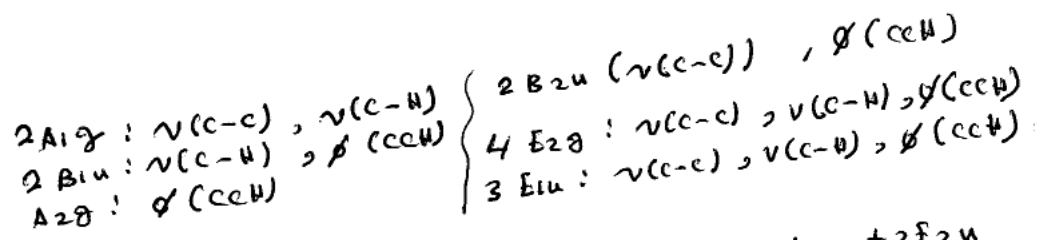 2A1g : ν(C-C) , ν(C-H)
2 B1u : ν(C-H) , φ (CCH)
A2g : φ (CCH)
2 B2u (ν(C-C)) , φ (CCH)
4 E2g : ν(C-C) , ν(C-H) , φ(CCH)
3 E1u : ν(C-C) , ν(C-H) , φ (CCH)